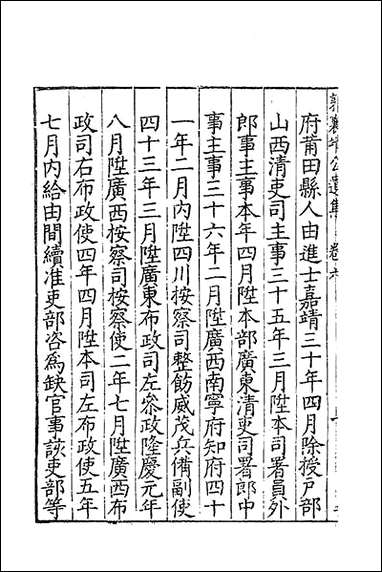 郭襄靖公遺集 卷六
府莆田縣人由進士嘉靖三十年四月除授戶部
山西清吏司主事三十五年三月陞本司署員外
郎事主事本年四月陞本部廣東清吏司署郎中
事主事三十六年二月陞廣西南寧府知府四十
一年二月內陞四川按察司整飭威茂兵備副使
四十三年三月陞廣東布政司左參政隆慶元年
八月陞廣西按察司按察使二年七月陞廣西布
政司右布政使四年四月陞本司左布政使五年
七月內給由間續准吏部咨爲缺官事該吏部等